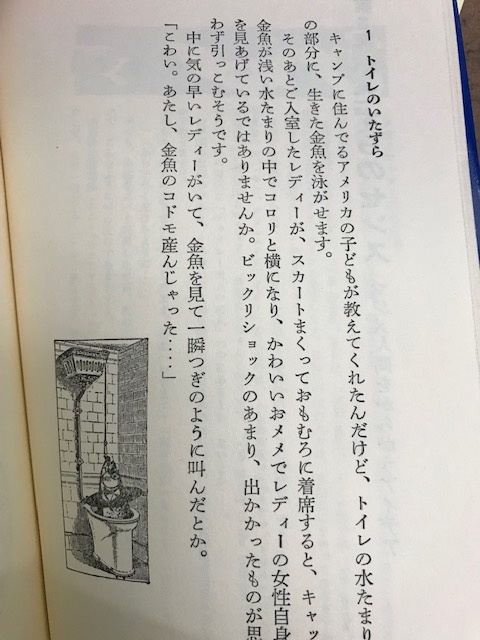 1 トイレのいたずら
キャンプに住んでるアメリカの子どもが教えてくれたんだけど、トイレの水たまり
の部分に、生きた金魚を泳がせます。
そのあとご入室したレディーが、スカートまくっておもむろに着席すると、キャッ
金魚が浅い水たまりの中でコロリと横になり、かわいいおメメでレディーの女性自身
を見あげているではありませんか。ビックリショックのあまり、出かかったものが思
わず引っこむそうです。
中に気の早いレディーがいて、金魚を見て一瞬つぎのように叫んだとか。
「こわい。あたし、金魚のコドモ産んじゃった‥‥」